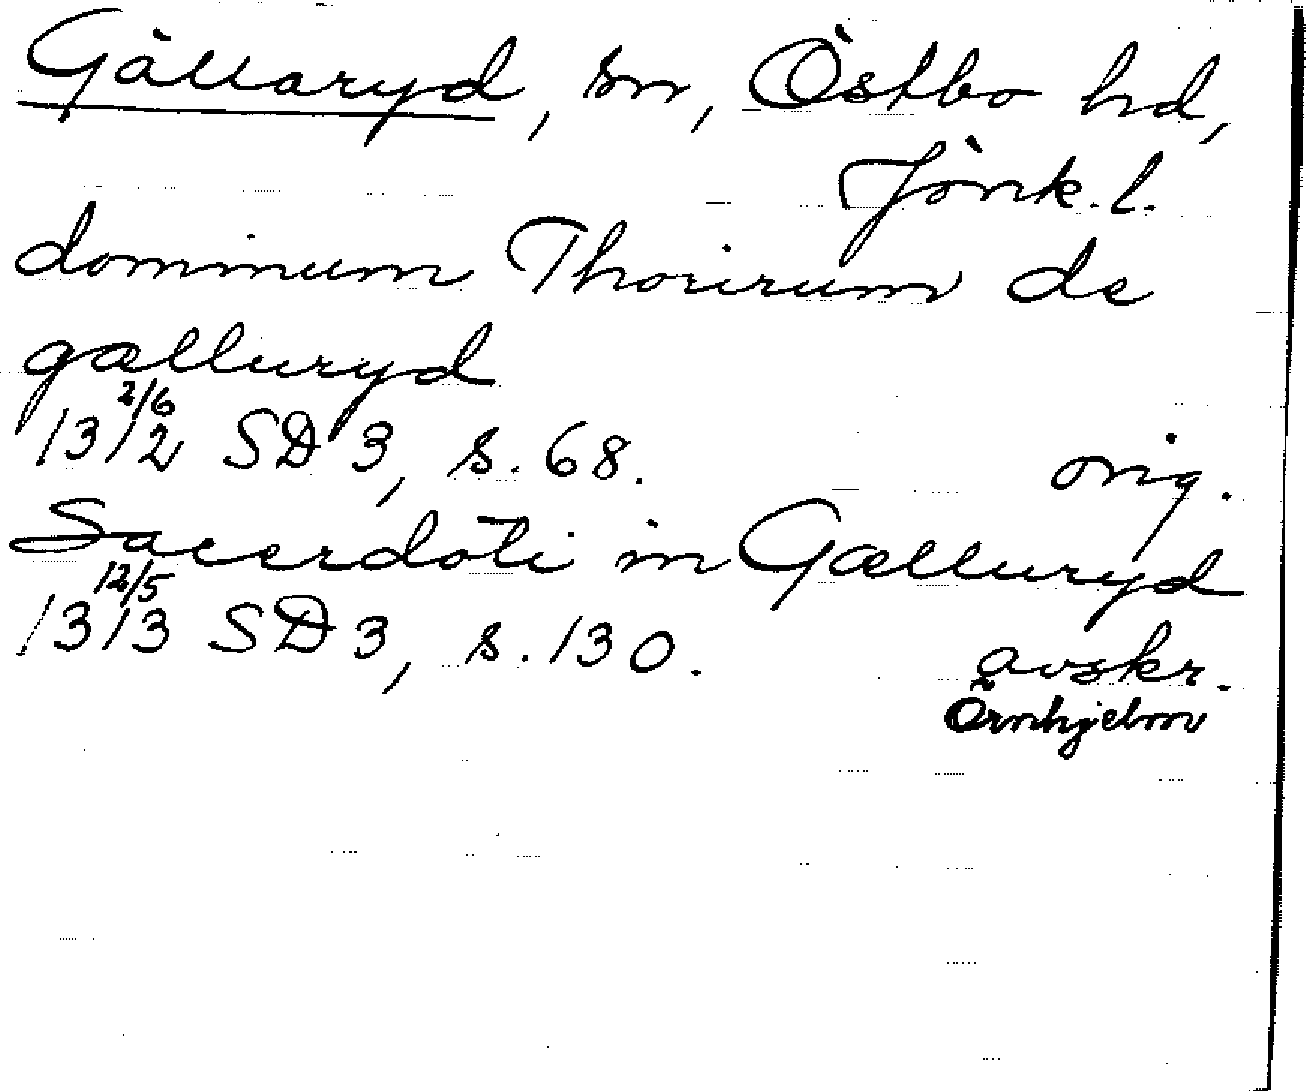 Gällaryd, sn, Östbo hd,
Jönk. l.
dominum Thorirum de
gælluryd
13 2/6 12 SD 3, s. 68. orig.
Sacerdoti in Gælluryd
13 12/5 13 SD 3, s. 130. avskr.
Örnhjelm